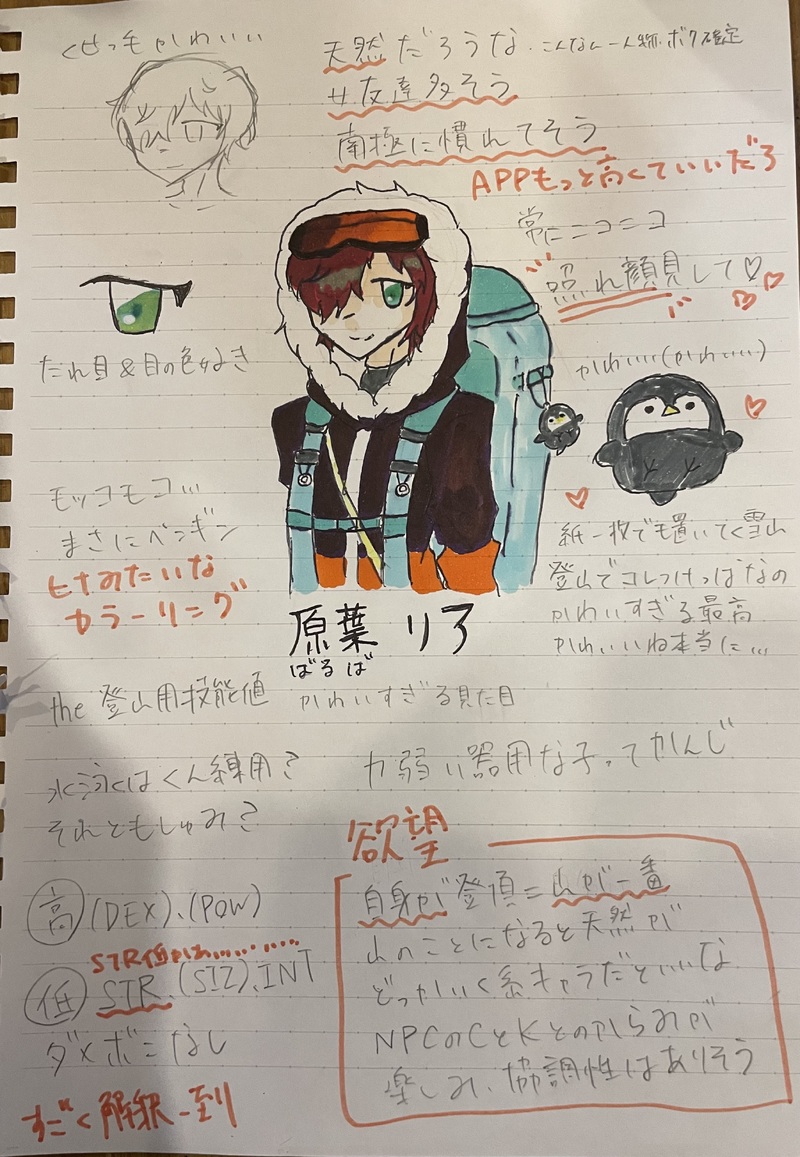 くせっ毛かわいい
天然だろうな、こんなん一人称ボク確定
サ友達多そう
南極に慣れてそう
APPもっと高くていいだろ
常にニコニコ
照れ顔見して♡
たれ目&目の色好き
かわいい(かわいい)
モッコモコ…
まさにペンギン
ヒナみたいな
カラーリング
紙一枚でも置いてく雪山
登山でコレつけっぱなの
かわいすぎる最高
かわいいね本当に…
原葉 リア
ばるば
かわいすぎる見た目
the 登山用技能値
水泳はくん練用?
それともしゅみ?
力弱い器用な子ってかんじ
高 (DEX)、(POW)
STR低かわ……
低 STR、(SIZ)、INT
ダメボ=なし
すごく解釈一到
欲望
自身が登頂=山が一番
山のことになると天然が
どっかいく系キャラだといいな
NPCのCとKとのからみが
楽しみ、協調性はありそう